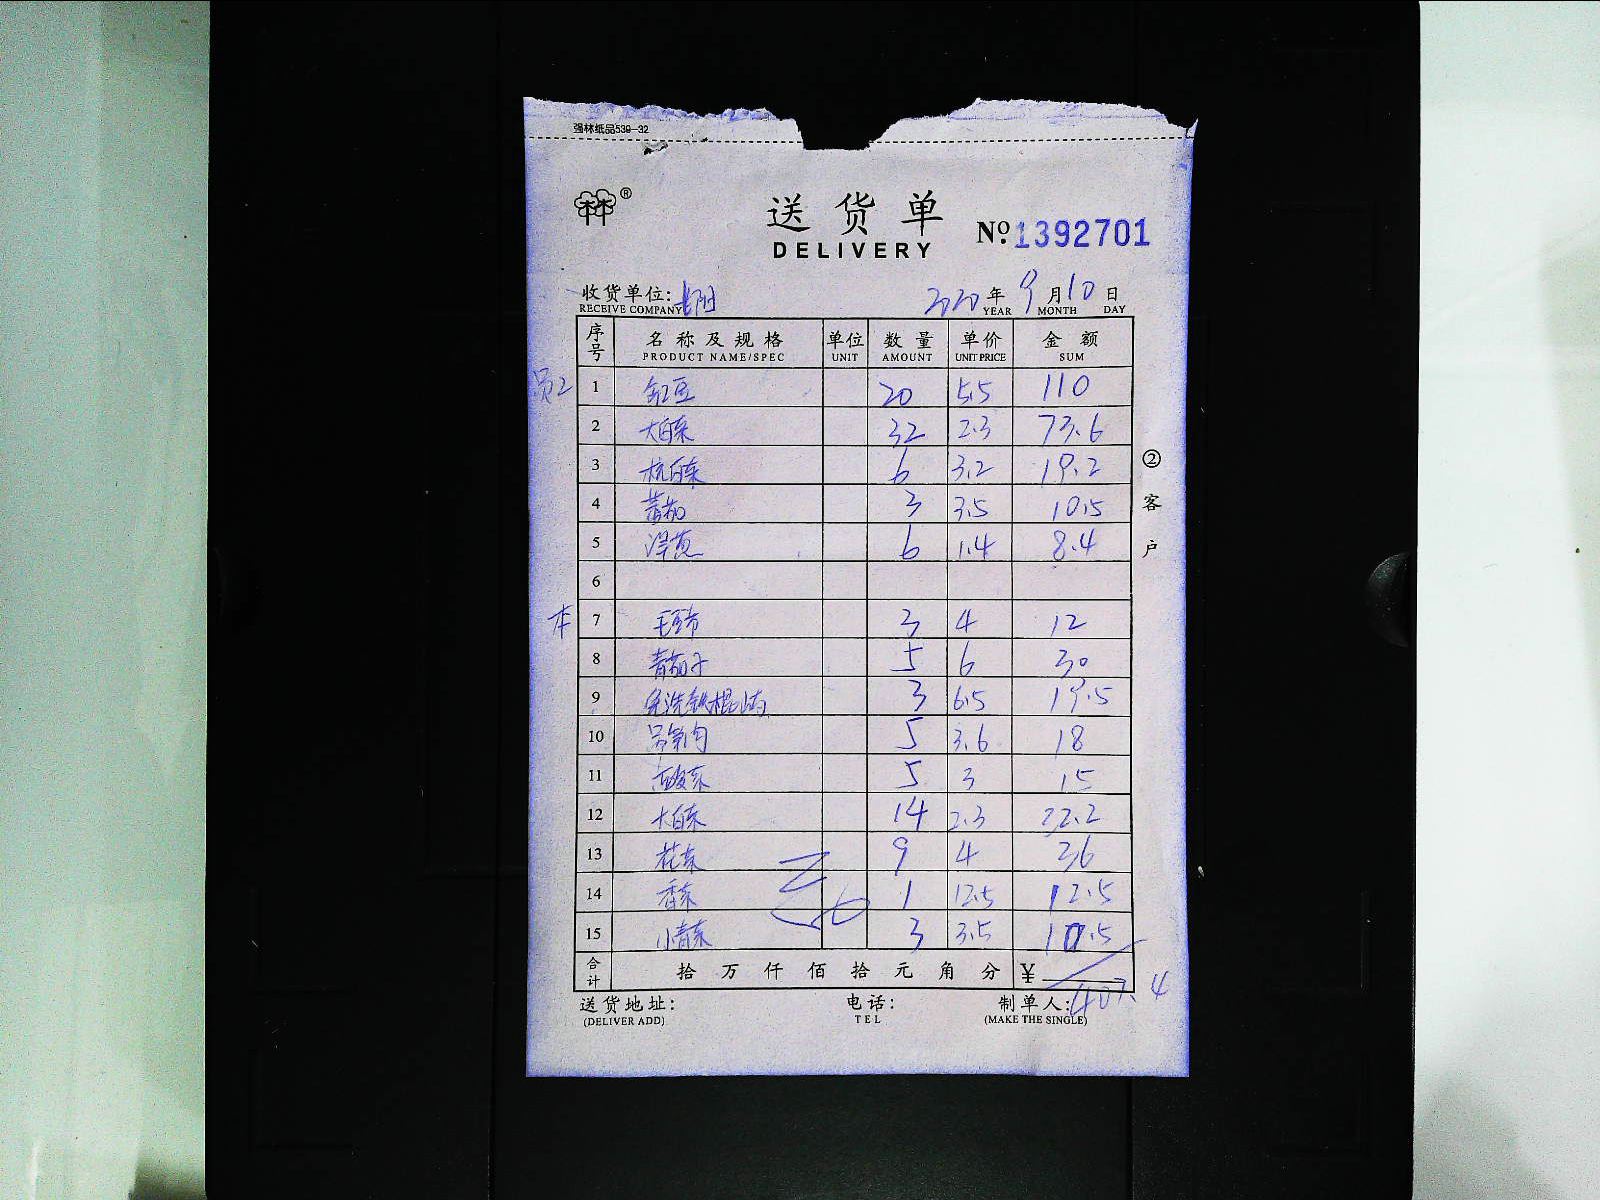 强林纸品539-32
®
送货单
DELIVERY
№ 1392701
收货单位:
RECEIVE COMPANY
2020 年 9 月 10 日
YEAR MONTH DAY
序号 名称及规格 单位 数量 单价 金额
PRODUCT NAME/SPEC UNIT AMOUNT UNIT PRICE SUM
员工 1 缸豆 20 5.5 110
2 大白菜 32 2.3 73.6
3 杭白菜 6 3.2 19.2
4 蕃茄 3 3.5 10.5
5 洋葱 6 1.4 8.4
6
本 7 3 4 12
8 青茄子 5 6 30
9 免洗铁棍山药 3 6.5 19.5
10 5 3.6 18
11 5 3 15
12 大白菜 14 2.3 32.2
13 花菜 9 4 36
14 香菜 1 12.5 12.5
15 小青菜 3 3.5 10.5
合计 拾 万 仟 佰 拾 元 角 分 ¥ 407.4
② 客户
送货地址: 电话: 制单人:
(DELIVER ADD) TEL (MAKE THE SINGLE)